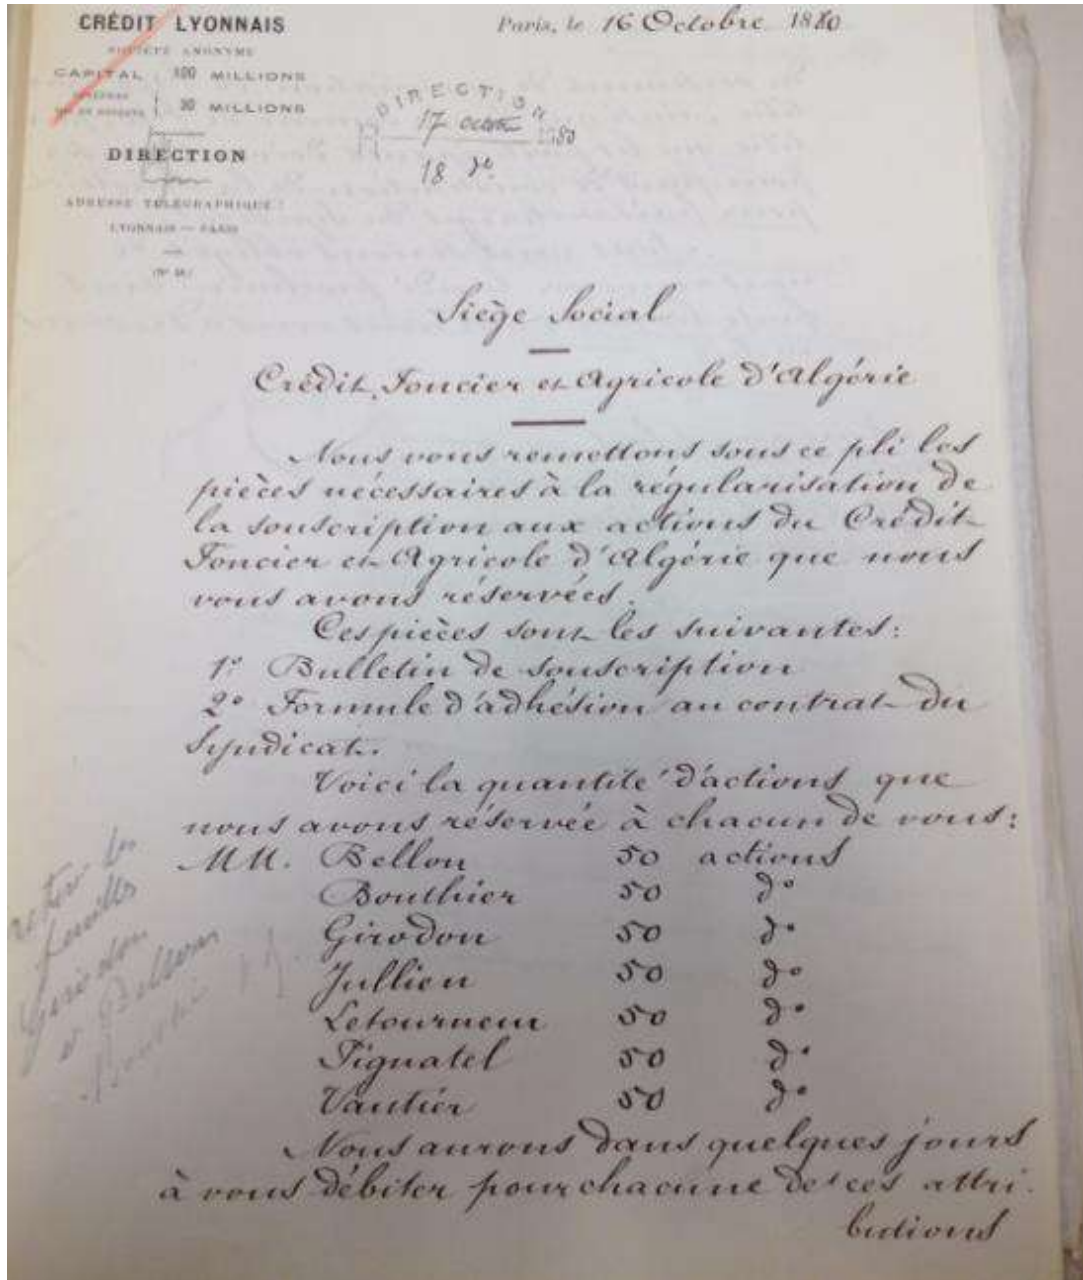 CRÉDIT LYONNAIS
SOCIÉTÉ ANONYME
CAPITAL : 100 MILLIONS
30 MILLIONS
DIRECTION
ADRESSE TÉLÉGRAPHIQUE :
LYONNAIS — PARIS
Paris, le 16 Octobre 1880
DIRECTION
17 1880
18 do
Siège Social
Crédit Foncier et Agricole d'Algérie
Nous vous remettons sous ce pli les
pièces nécessaires à la régularisation de
la souscription aux actions du Crédit
Foncier et Agricole d'Algérie que nous
vous avons réservées.
Ces pièces sont les suivantes:
1º Bulletin de souscription
2º Formule d'adhésion au contrat du
Syndicat.
Voici la quantité d'actions que
nous avons réservée à chacun de vous:
MM. Bellon 50 actions
Bouthier 50 dº
Girodon 50 dº
Jullien 50 dº
Letourneur 50 dº
Pignatel 50 dº
Vautier 50 dº
Nous aurons dans quelques jours
à vous débiter pour chacune de ces attri-
butions
les
feuilles
Girodon
et Bellon